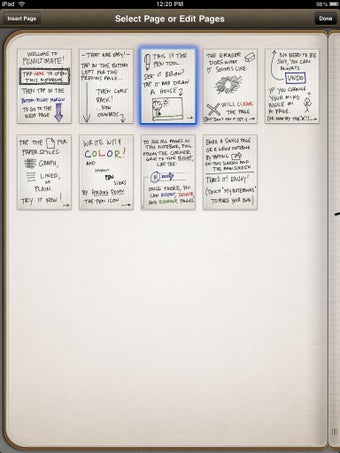 iPad
12:20 PM
98%
Insert Page
Select Page or Edit Pages
Done
WELCOME TO
PENULTIMATE!
TAP HERE TO OPEN
THIS NOTEBOOK
THEN TAP IN THE
BOTTOM-RIGHT MARGIN
TO GO TO THE
NEXT PAGE
THAT WAS EASY!
TAP IN THE BOTTOM
LEFT FOR THE
PREVIOUS PAGE...
THEN COME
BACK!
NOW
ONWARDS!
THIS IS
THE PEN TOOL
SEE IT BELOW?
TAP IT AND DRAW
A HOUSE?
THE ERASER
DOES WHAT
IT SOUNDS LIKE.
WILL CLEAR
THE PAGE
NO NEED TO BE
SHY, YOU CAN
ALWAYS
UNDO
IF YOU CHANGE
YOUR MIND
TAP THE FOR
PAPER STYLES:
GRAPH,
LINED,
OR
PLAIN.
TRY IT NOW!
WRITE WITH
COLOR!
AND
DIFFERENT
PEN
SIZES
BY HOLDING DOWN
THE PEN ICON...
TO SEE ALL PAGES IN
THIS NOTEBOOK, PULL
FROM THE CORNER
GRIP TO THE RIGHT,
LIKE THIS
ONCE THERE, YOU
CAN INSERT, DELETE
AND REORDER PAGES
EMAIL A SINGLE PAGE
OR A WHOLE NOTEBOOK
BY TAPPING
ON THIS SCREEN AND
THE MAIN SCREEN
THAT'S IT! ENJOY!
(TOUCH "MY NOTEBOOKS"
TO MAKE YOUR OWN)